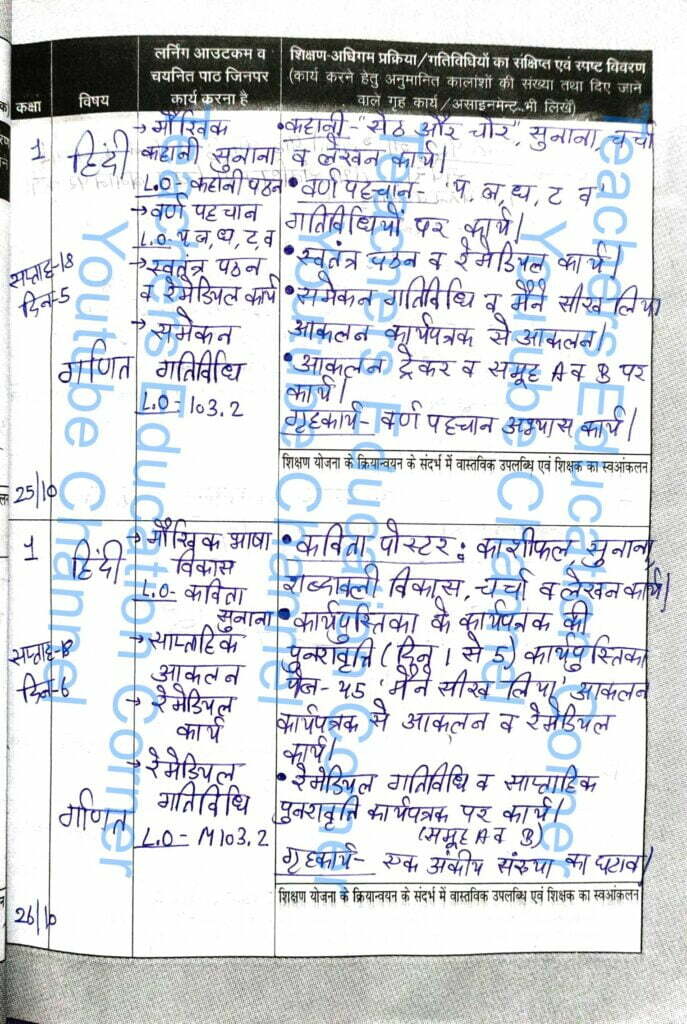 कक्षा
विषय
लर्निंग आउटकम व
चयनित पाठ जिनपर
कार्य करना है
शिक्षण-अधिगम प्रक्रिया/गतिविधियों का संक्षिप्त एवं स्पष्ट विवरण
(कार्य करने हेतु अनुमानित कालांशों की संख्या तथा दिए जाने
वाले गृह कार्य/असाइनमेन्ट भी लिखें)
1
हिंदी
सप्ताह-18
दिन-5
गणित
25/10
→ मौखिक
कहानी सुनाना
L.O- कहानी पठन
→ वर्ण पहचान
L.O- प,ज,ध,ट,व
→ स्वतंत्र पठन
व रेमेडियल कार्य
→ समेकन
गतिविधि
L.O- 103.2
• कहानी- "सेठ और चोर", सुनाना, चर्चा
व लेखन कार्य।
• वर्ण पहचान- 'प, ज, ध, ट व'
गतिविधियों पर कार्य।
• स्वतंत्र पठन व रेमेडियल कार्य।
• समेकन गतिविधि व मैंने सीख लिया
आकलन कार्यपत्रक से आकलन।
• आकलन ट्रेकर व समूह A व B पर
कार्य।
गृहकार्य- वर्ण पहचान अभ्यास कार्य।
शिक्षण योजना के क्रियान्वयन के संदर्भ में वास्तविक उपलब्धि एवं शिक्षक का स्वआंकलन
1
हिंदी
सप्ताह-18
दिन-6
गणित
26/10
→ मौखिक भाषा
विकास
L.O- कविता
सुनाना
→ साप्ताहिक
आकलन
→ रेमेडियल
कार्य
→ रेमेडियल
गतिविधि
L.O- M103.2
• कविता पोस्टर: काशीफल, सुनाना,
शब्दावली विकास, चर्चा व लेखन कार्य।
• कार्यपुस्तिका के कार्यपत्रक की
पुनरावृत्ति (दिन 1 से 5) कार्यपुस्तिका
पेज-45 'मैंने सीख लिया' आकलन
कार्यपत्रक से आकलन व रेमेडियल
कार्य।
• रेमेडियल गतिविधि व साप्ताहिक
पुनरावृति कार्यपत्रक पर कार्य।
(समूह A व B)
गृहकार्य- एक अंकीय संख्या का घटाव।
शिक्षण योजना के क्रियान्वयन के संदर्भ में वास्तविक उपलब्धि एवं शिक्षक का स्वआंकलन
Teachers Education Corner
Youtube Channel
Teachers Education Corner
Youtube Channel
Teachers Education Corner
Youtube Channel